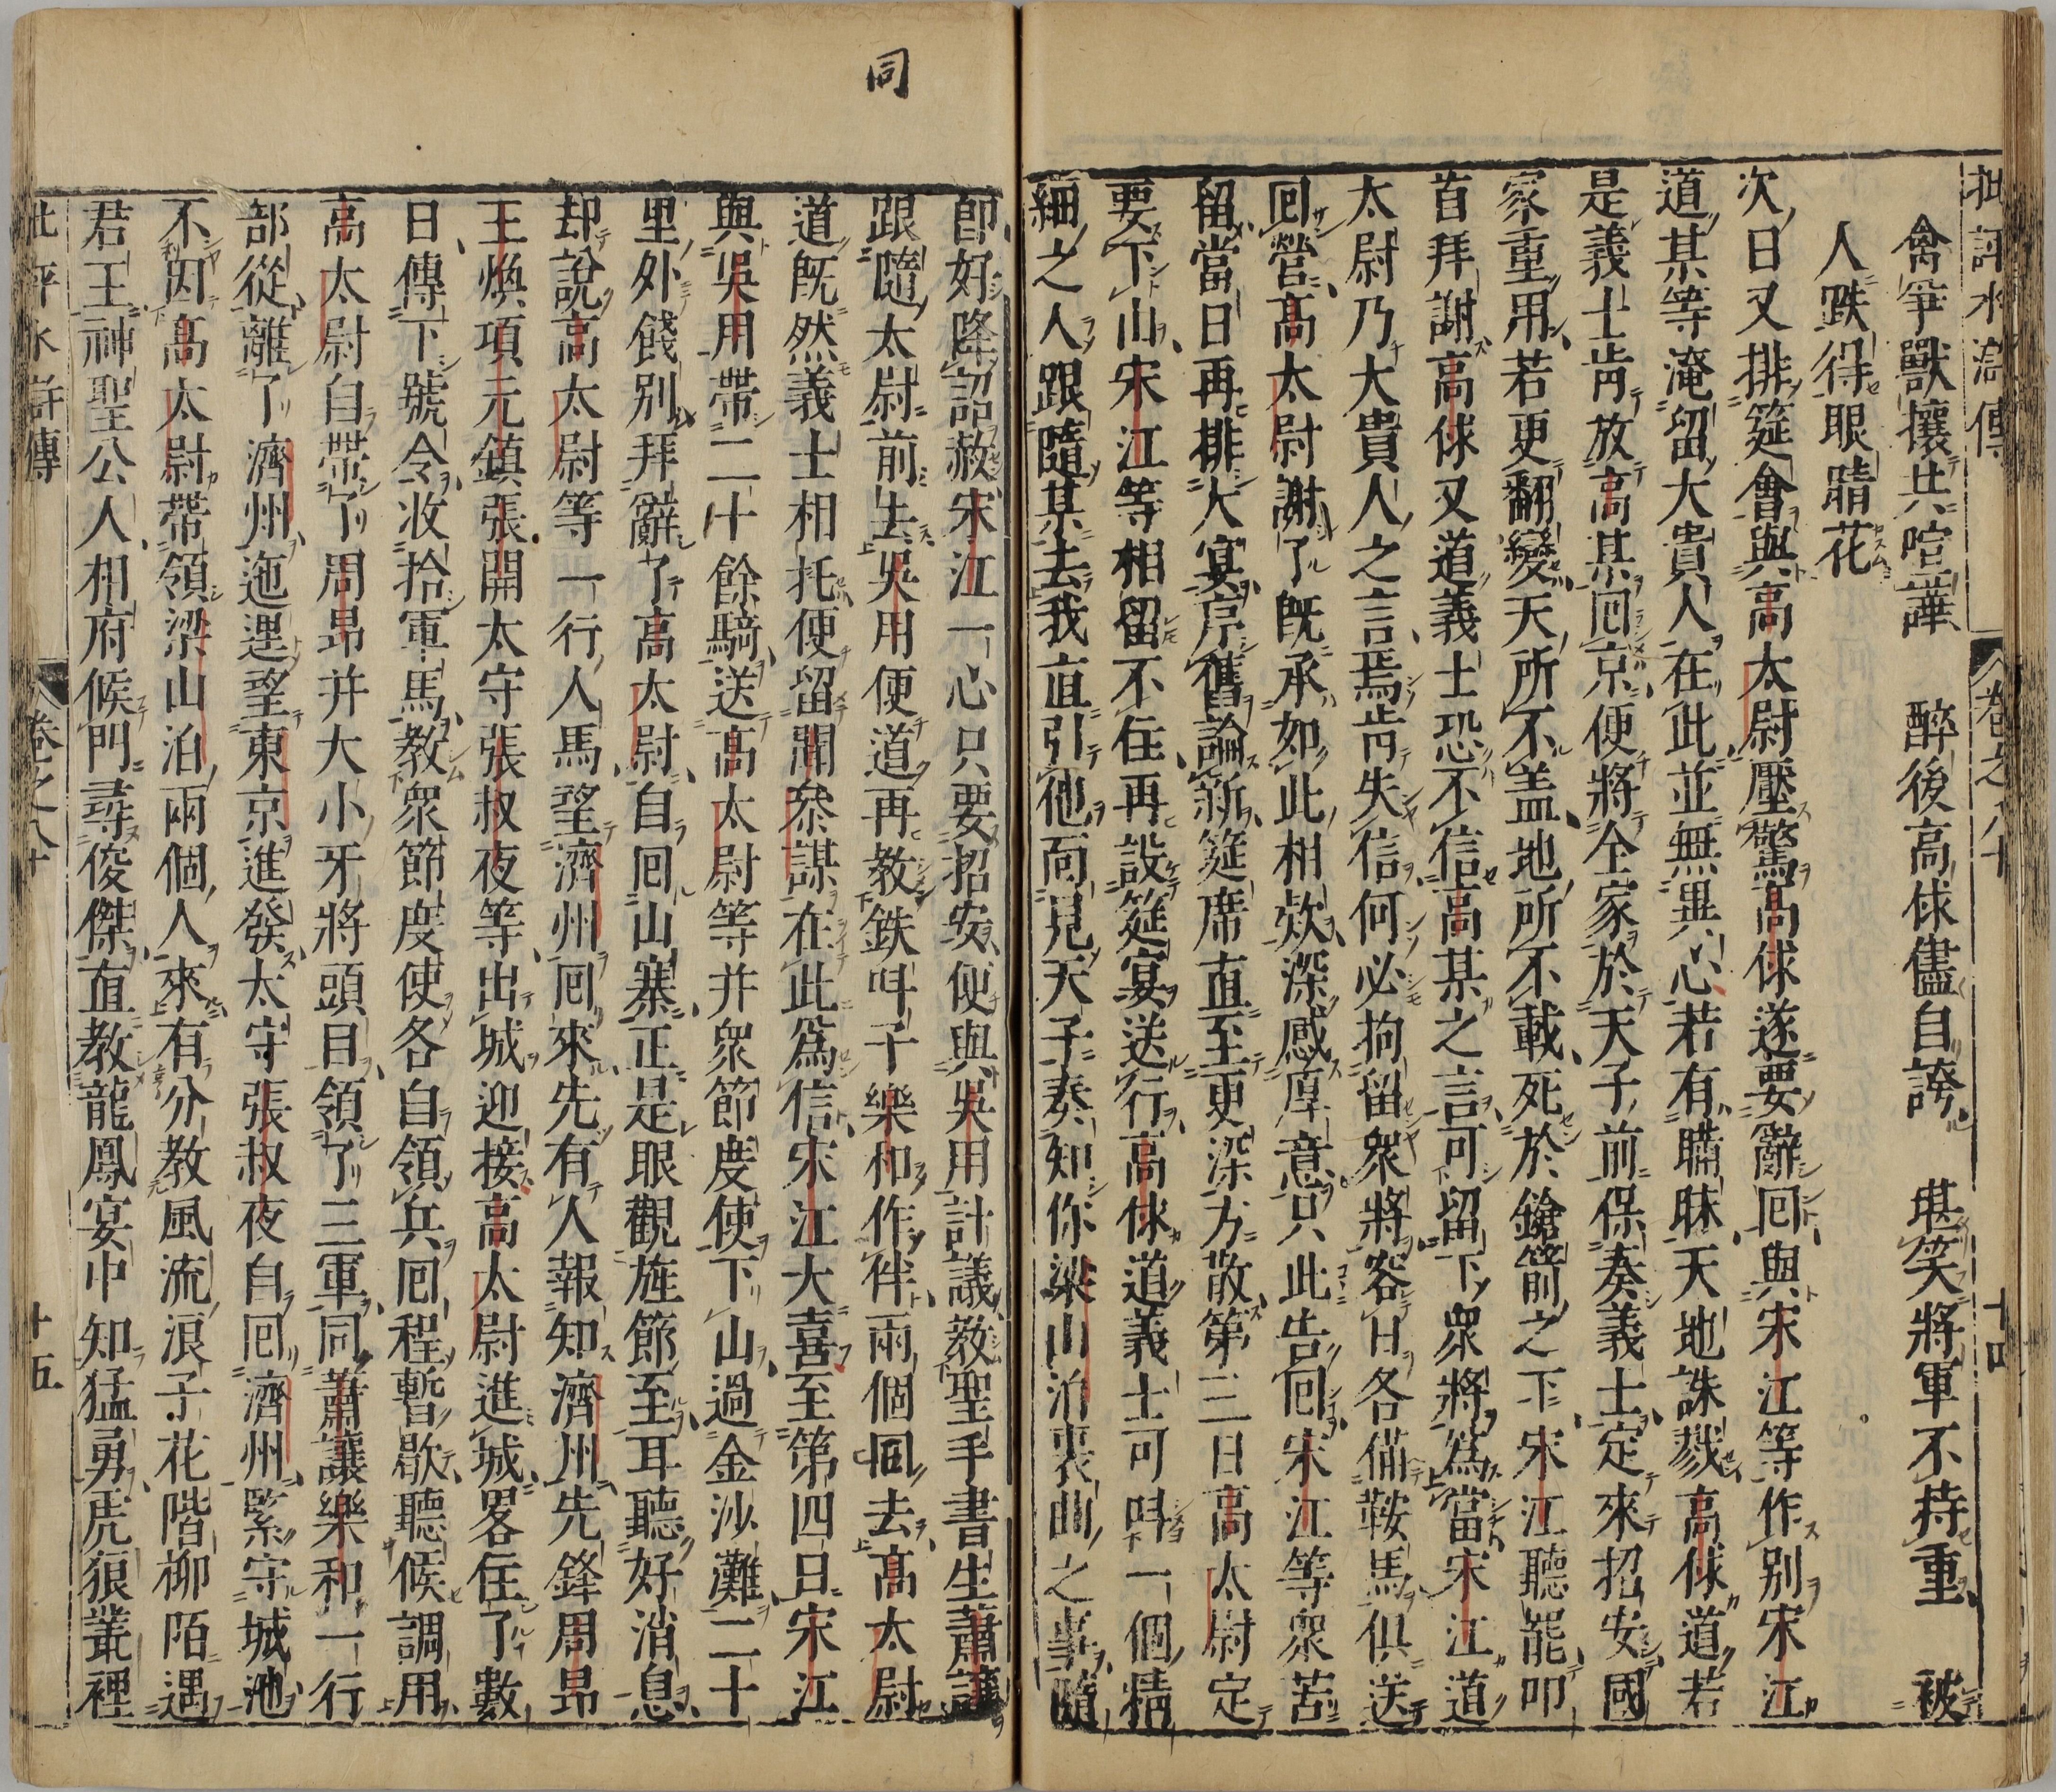 批評水滸傳 卷之八十 十四
禽爭獸攘共喧譁 醉後高俅儘自誇 堪笑將軍不持重 被
人跌得眼睛花
次日又排筵會與高太尉壓驚高俅遂要辭回與宋江等作别宋江
道某等淹留大貴人在此並無異心若有瞞昧天地誅戮高俅道若
是義士肯放高某回京便將全家於天子前保奏義士定來招安國
家重用若更翻變天所不盖地所不載死於鎗箭之下宋江聽罷叩
首拜謝高俅又道義士恐不信高某之言可留下眾將為當宋江道
太尉乃大貴人之言焉肯失信何必拘留眾將容日各備鞍馬俱送
回營高太尉謝了既承如此相欵深感厚意只此告回宋江等眾苦
留當日再排大宴序舊論新筵席直至更深方散第三日高太尉定
要下山宋江等相留不住再設筵宴送行高俅道義士可呌一個精
細之人跟隨某去我直引他面見天子奏知你梁山泊衷曲之事隨
同
即好降詔赦宋江一心只要招安便與吳用計議教聖手書生蕭讓
跟隨太尉前去吳用便道再教鉄呌子樂和作伴兩個同去高太尉
道既然義士相托便留聞參謀在此為信宋江大喜至第四日宋江
與吳用帶二十餘騎送高太尉等并眾節度使下山過金沙灘二十
里外餞别拜辭了高太尉自回山寨正是眼觀旌節至耳聽好消息
却說高太尉等一行人馬望濟州回來先有人報知濟州先鋒周昂
王煥項元鎮張開太守張叔夜等出城迎接高太尉進城畧住了數
日傳下號令收拾軍馬教眾節度使各自領兵回程暫歇聽候調用
高太尉自帶了周昂并大小牙將頭目領了三軍同蕭讓樂和一行
部從離了濟州迤邐望東京進發太守張叔夜自回濟州緊守城池
不因高太尉帶領梁山泊兩個人來有分教風流浪子花階柳陌遇
君王神聖公人相府候門尋俊傑直教龍鳳宴中知猛勇虎狼叢裡
批評水滸傳 卷之八十 十五